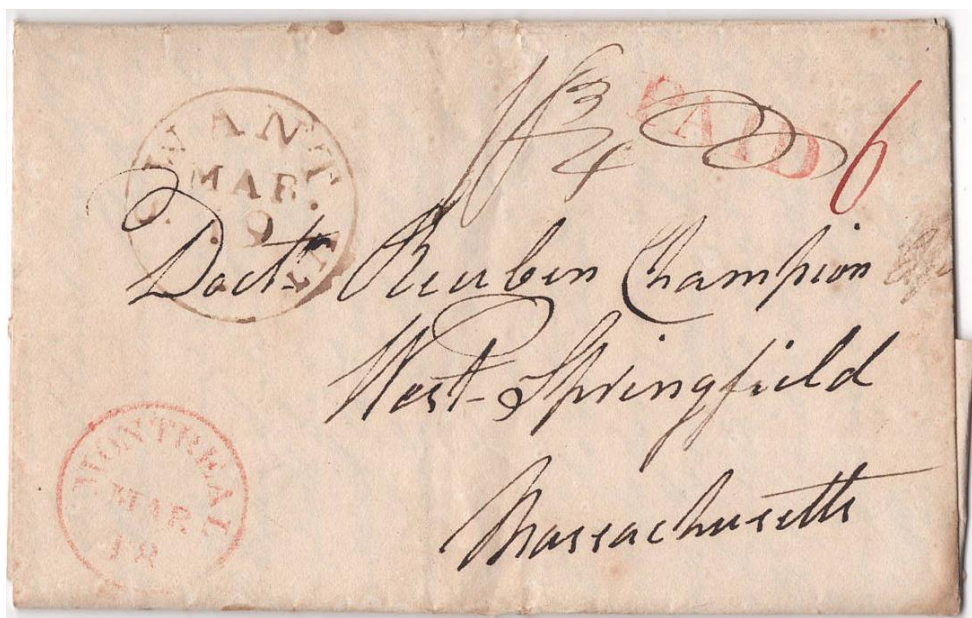 SWANT. VT
MAR.
9
18 3/4 PAID 6
Doctr. Reuben Champion
West Springfield
Massachusetts
MONTREAL
MAR
18